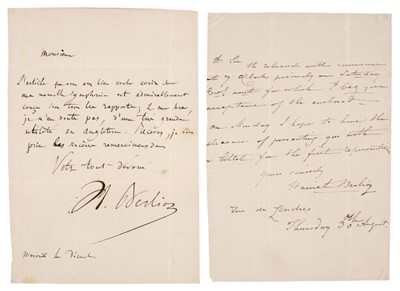 Monsieur
L'article que vous avez bien voulu écrire sur
ma nouvelle symphonie est admirablement
conçu sous tous les rapports; il me sera
je n'en doute pas, d'une très grande
utilité en Angleterre. Recevez, je vous
prie, les sincères remerciements
Votre tout dévoué
H. Berlioz
Mercredi Décembre
the rehearsal will commence
at 7 o'Clock precisely on Saturday
next for which I beg your
acceptance of the enclosed.
On Monday I hope to have the
pleasure of presenting you with
a billet for the first representation
Yours sincerely
Harriet Berlioz
Rue de Londres
Thursday 30th August.